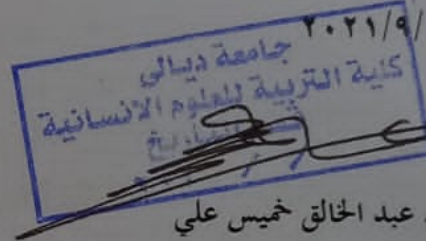 ٢٠٢١/٩/
جامعة ديالى
كلية التربية للعلوم الانسانية
عبد الخالق خميس علي